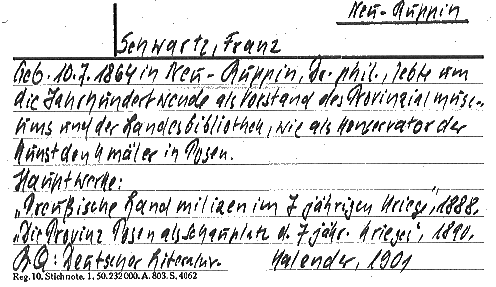 Neu-Ruppin
Schwartz, Franz
Geb. 10.7.1864 in Neu-Ruppin, Dr. phil., lebte um
die Jahrhundertwende als Vorstand des Provinzialmuse-
ums und der Landesbibliothek, wie als Konservator der
Kunstdenkmäler in Posen.
Hauptwerke:
"Preußische Landmilizen im 7 jährigen Kriege", 1888.
"Die Provinz Posen als Schauplatz d. 7 jähr. Krieges", 1890.
BQ: Deutscher Literatur- Kalender, 1901
Reg. 10. Stichnote. 1. 50. 232 000. A. 803. S. 4062